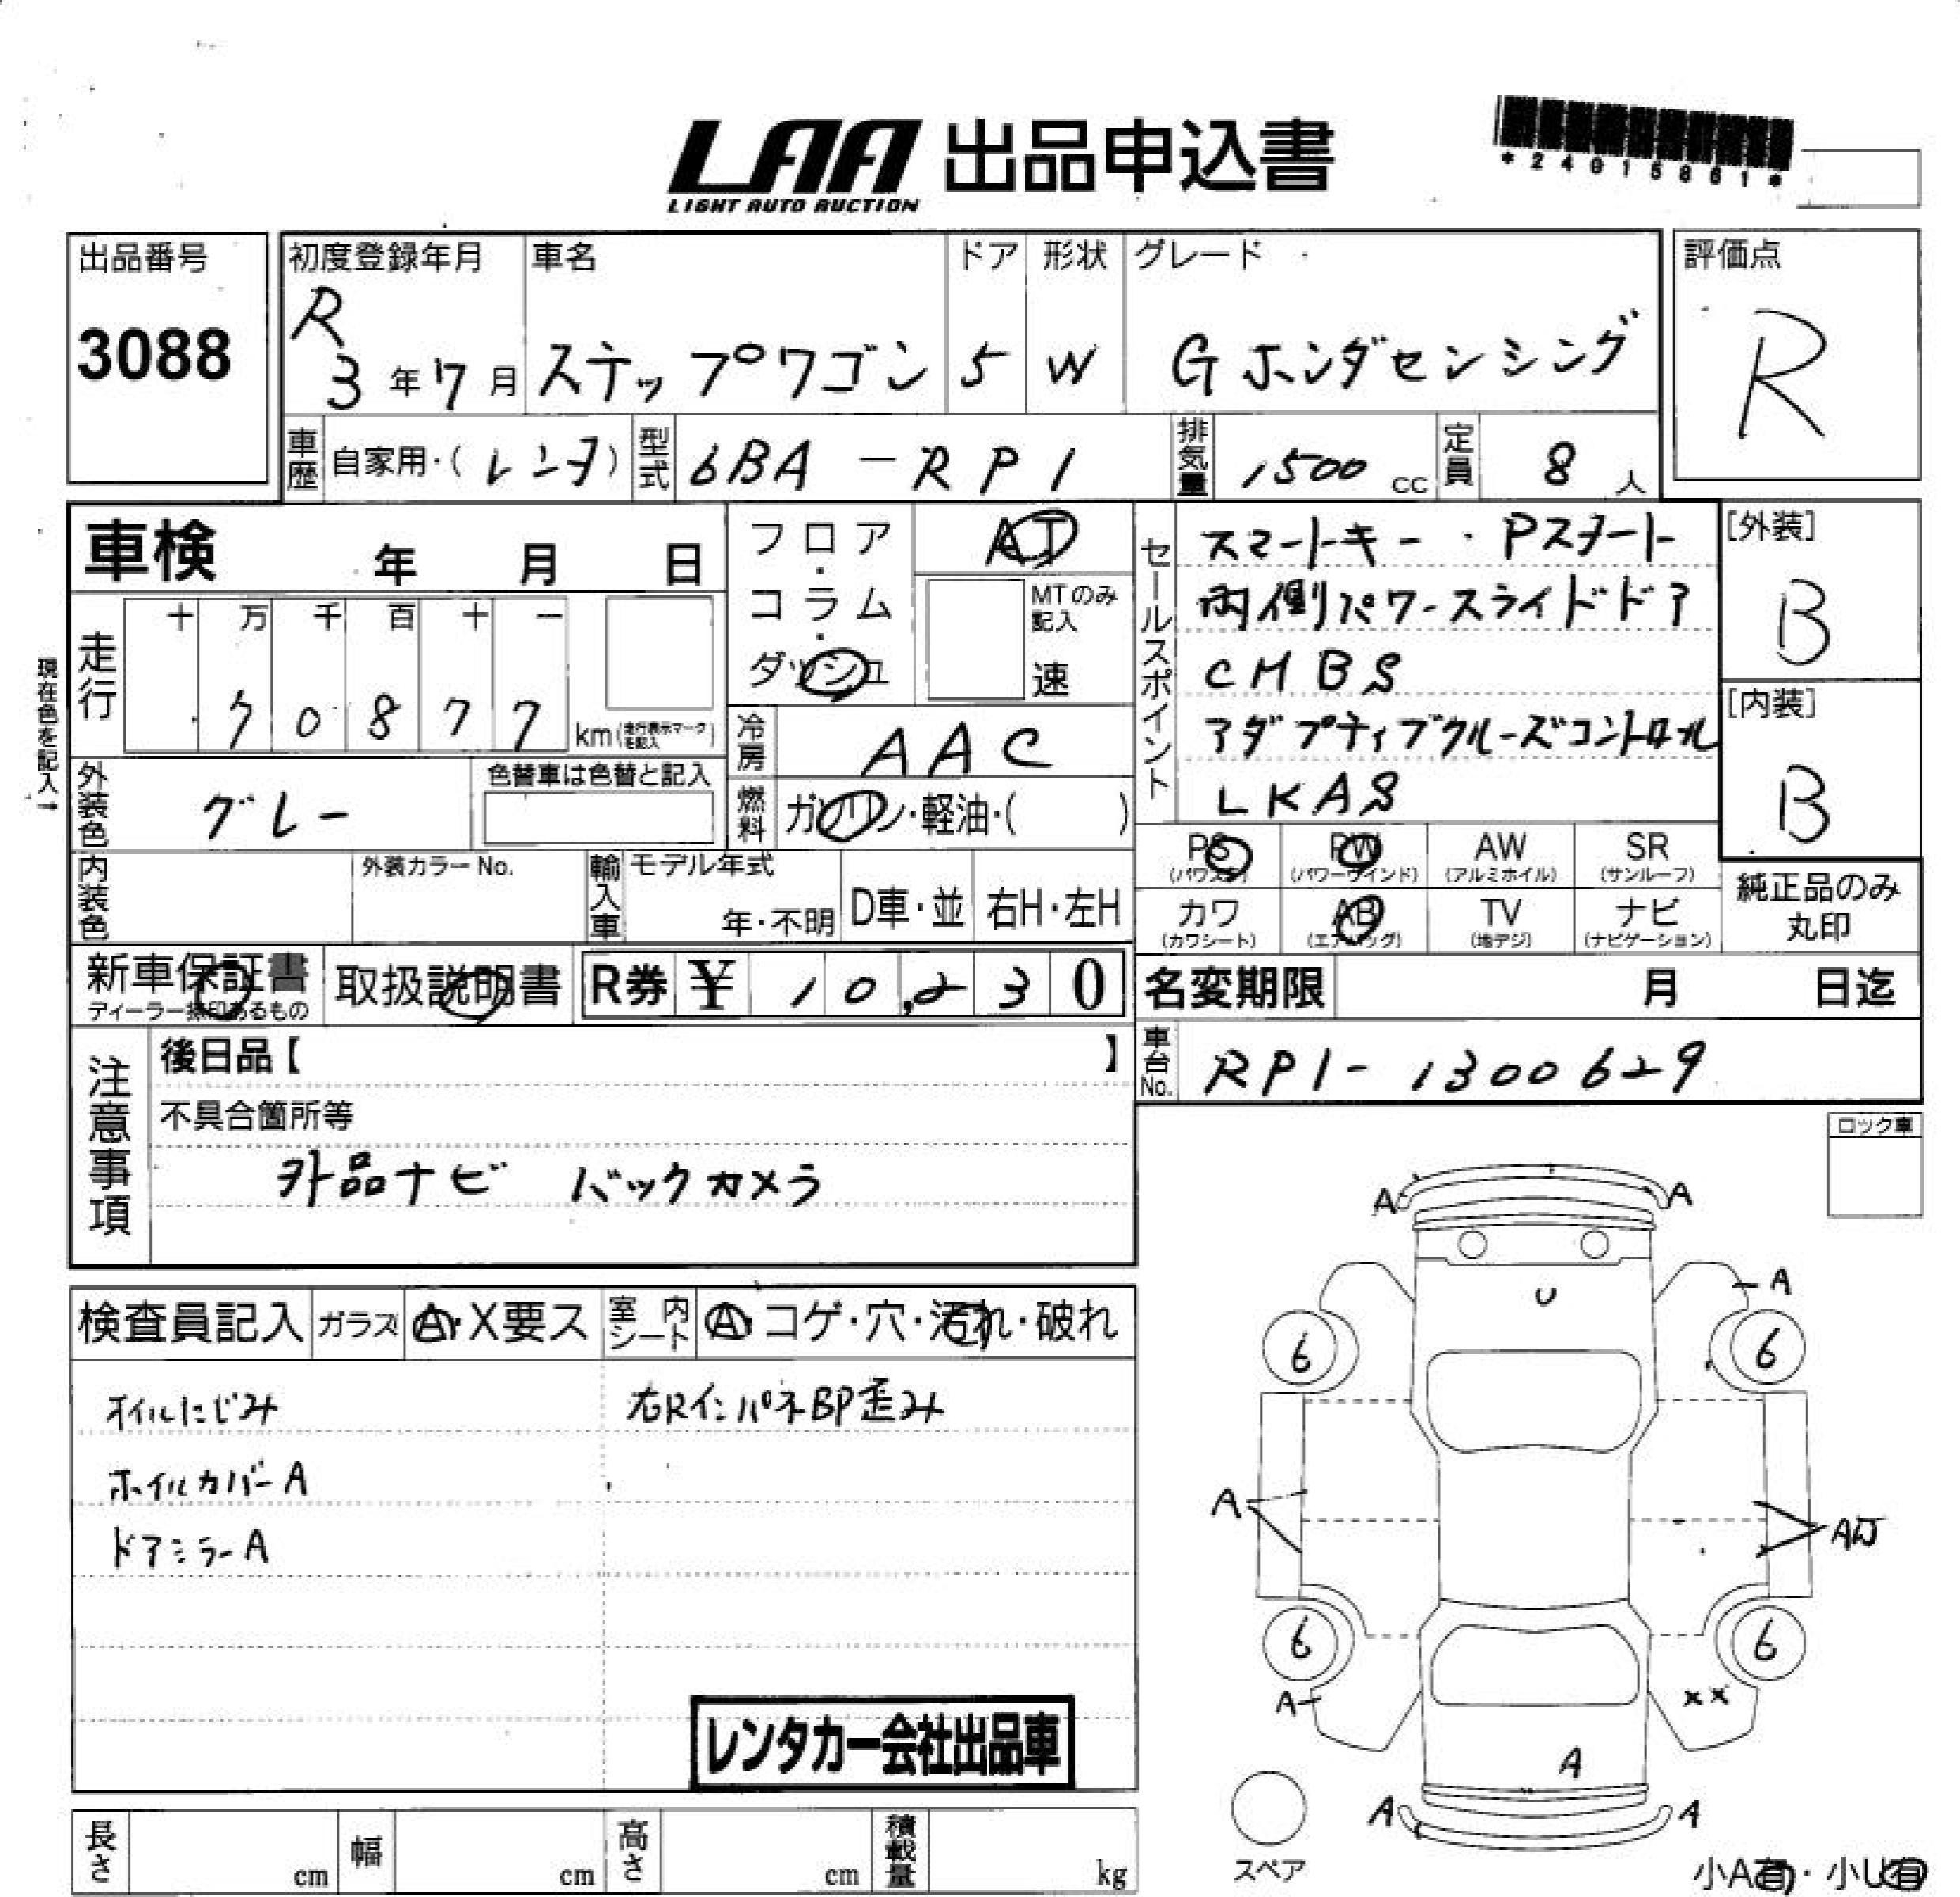 LAA 出品申込書
LIGHT AUTO AUCTION
*24015861*
出品番号
3088
初度登録年月
R
3年7月
車名
ステップワゴン
ドア
5
形状
W
グレード
Gホンダセンシング
評価点
R
車歴 自家用・(レンタ)
型式 6BA-RP1
排気量 1500cc
定員 8人
車検 年 月 日
走行 十 万 千 百 十 一
70877 km(走行表示マークを記入)
現在色を記入→
フロア・コラム・ダッシュ
AT
MTのみ記入
速
冷房 AAC
燃料 ガソリン・軽油・( )
外装色 グレー
色替車は色替と記入
内装色
外装カラーNo.
輸入車 モデル年式
年・不明
D車・並
右H・左H
セールスポイント
スマートキー・Pスタート
両側パワースライドドア
CMBS
アダプティブクルーズコントロール
LKAS
[外装]
B
[内装]
B
PS (パワステ)
PW (パワーウインド)
AW (アルミホイル)
SR (サンルーフ)
カワ (カワシート)
AB (エアバッグ)
TV (地デジ)
ナビ (ナビゲーション)
純正品のみ丸印
新車保証書
ディーラー捺印あるもの
取扱説明書
R券 ¥ 10,230
名変期限 月 日迄
車台No. RP1-1300629
注意事項
後日品【 】
不具合箇所等
外品ナビ バックカメラ
ロック車
検査員記入
ガラス A・X要ス
室内シート A・コゲ・穴・汚れ・破れ
オイルにじみ
右RインパネBP歪み
ホイルカバーA
ドアミラーA
レンタカー会社出品車
A A
U A
6 6
A AU
6 6
A XX
A
A A
スペア
小A有・小U有
長さ cm
幅 cm
高さ cm
積載量 kg